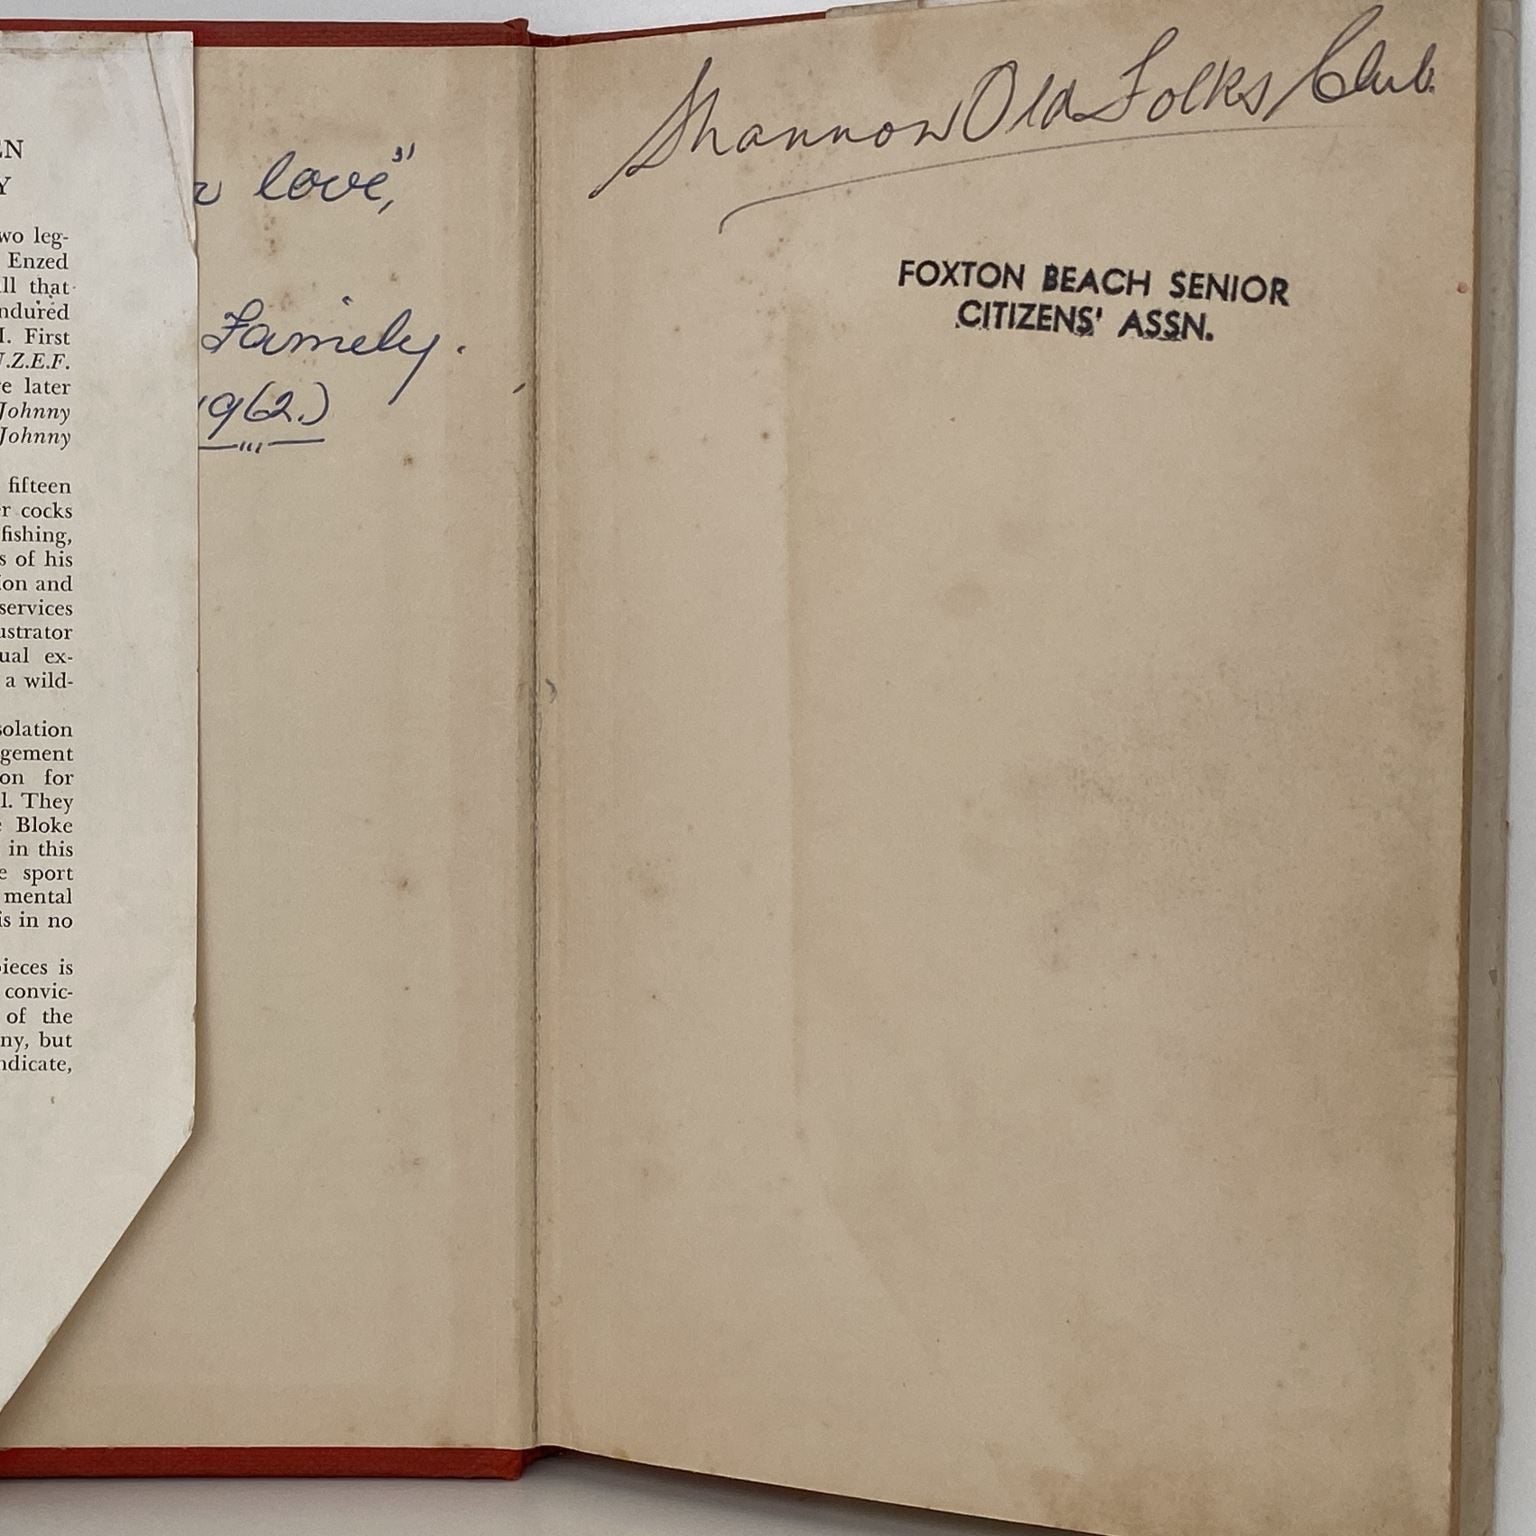 EN
Y
wo leg-
Enzed
ll that
ndured
I. First
.Z.E.F.
e later
Johnny
Johnny
fifteen
r cocks
fishing,
s of his
ion and
services
ustrator
ual ex-
a wild-
solation
gement
on for
l. They
e Bloke
in this
e sport
mental
is in no
pieces is
convic-
of the
ny, but
ndicate,
love,"
Famiely.
1962.)
Shannon Old Folks Club.
FOXTON BEACH SENIOR
CITIZENS' ASSN.